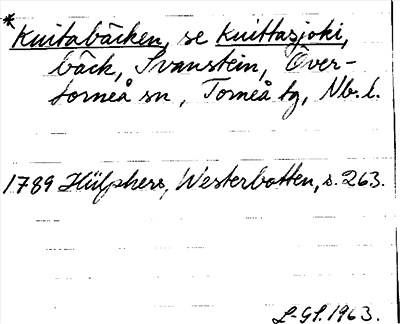 *Kuitabäcken, se Kuittasjoki,
bäck, Svanstein, Över-
torneå sn, Torneå tg, Nb. l.
1789 Hülphers, Westerbotten, s. 263.
L-Gl. 1963.